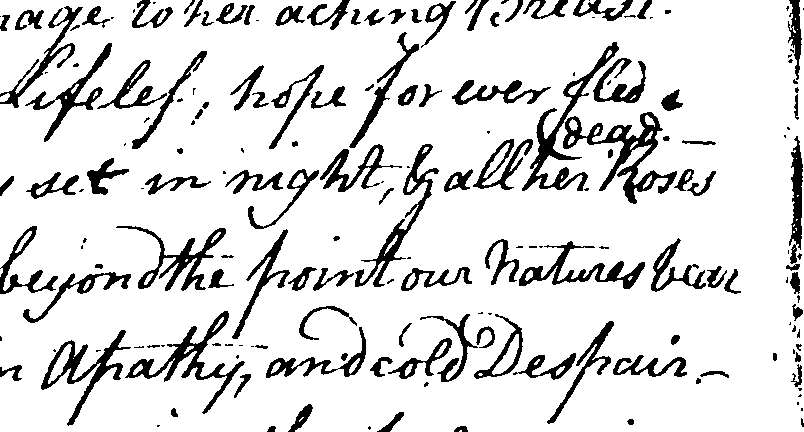 to her aching Breast.
Lifeless, hope for ever fled.
dead.—
set in night, & all her Roses
beyond the point our Natures bear
Apathy, and cold Despair.—